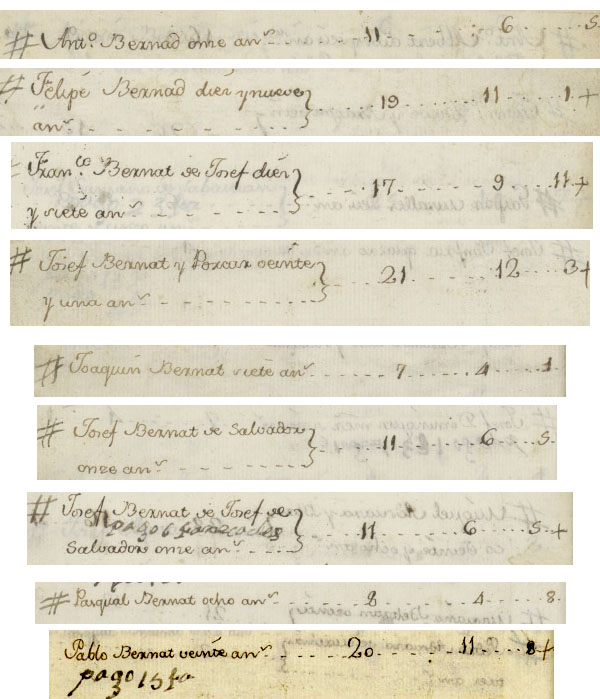 # Ant.º Bernad onse an.s 11 6 5
# Felipe Bernad diez y nueve
an.s 19 11 1 +
Fran.co Bernat de Josef diez
y siete an.s 17 9 11 +
# Josef Bernat y Porcar veinte
y una an.s 21 12 3 +
# Joaquin Bernat siete an.s 7 4 1
# Josef Bernat de Salvador
onze an.s 11 6 5
# Josef Bernat de Josef de
pago 6 fanecades
Salvador onse an.s 11 6 5 +
# Pasqual Bernat ocho an.s 8 4 8
Pablo Bernat veinte an.s 20 11 8 +
pago 15 fa